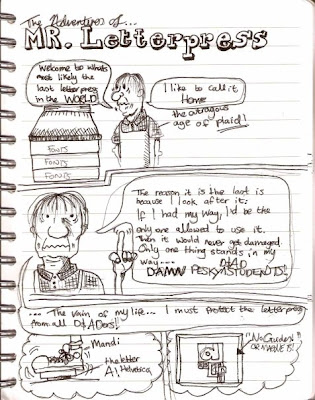 The Adventures of...
MR. Letterpress
Welcome to whats
most likely the
last letterpress
in the WORLD
I like to call it
Home
the outragous
age of plaid!
FONTS
FONTS
FONTS
The reason it is the last is
because I look after it.
If I had my way, I'd be the
only one allowed to use it.
Then it would never get damaged.
Only one thing stands in my
way.... D+AD
DAMN PESKY STUDENTS!
... The vain of my life... I must protect the letterpress
from all D+ADers!
Mandi
the letter
A! Helvetica
"No Guides!